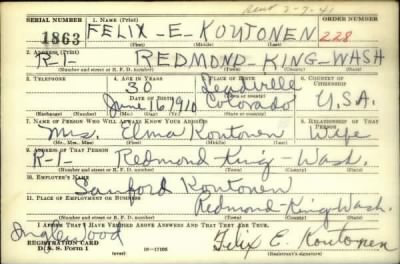 Rent 2-7-41
SERIAL NUMBER 1. NAME (Print) ORDER NUMBER
1863 FELIX - E - KOUTONEN 228
(First) (Middle) (Last)
2. ADDRESS (Print)
R-1- REDMOND - KING - WASH
(Number and street or R. F. D. number) (Town) (County) (State)
3. TELEPHONE 4. AGE IN YEARS 5. PLACE OF BIRTH 6. COUNTRY OF CITIZENSHIP
30 Leadville
DATE OF BIRTH (Town or county)
June 16 1910 Colorado U.S.A.
(Mo.) (Day) (Yr.) (State or country)
7. NAME OF PERSON WHO WILL ALWAYS KNOW YOUR ADDRESS 8. RELATIONSHIP OF THAT PERSON
Mrs. Elma Koutonen Wife
(Mr., Mrs., Miss) (First) (Middle) (Last)
9. ADDRESS OF THAT PERSON
R-1- Redmond - King - Wash.
(Number and street or R. F. D. number) (Town) (County) (State)
10. EMPLOYER'S NAME
Sanford Koutonen
11. PLACE OF EMPLOYMENT OR BUSINESS
Redmond - King Wash.
(Number and street or R. F. D. number) (Town) (County) (State)
I AFFIRM THAT I HAVE VERIFIED ABOVE ANSWERS AND THAT THEY ARE TRUE.
Inglewood
REGISTRATION CARD
D. S. S. Form 1 16-17105 Felix E. Koutonen
(Registrant's signature)